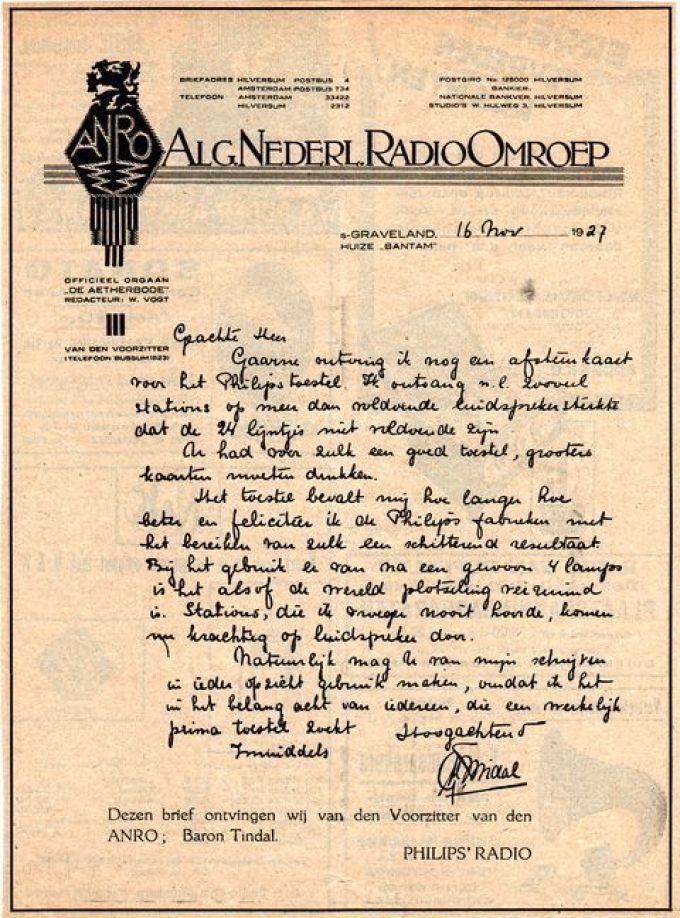 BRIEFADRES HILVERSUM POSTBUS 4
AMSTERDAM POSTBUS 734
TELEFOON AMSTERDAM 33422
HILVERSUM 2312
POSTGIRO No. 125000 HILVERSUM
BANKIER:
NATIONALE BANKVER. HILVERSUM
STUDIO'S W. HULWEG 3, HILVERSUM
ANRO
ALG. NEDERL. RADIO OMROEP
s-GRAVELAND, 16 Nov 1927
HUIZE „BANTAM"
OFFICIEEL ORGAAN
„DE AETHERBODE"
REDACTEUR: W. VOGT
VAN DEN VOORZITTER
(TELEFOON BUSSUM 1823)
Geachte Heer
Gaarne ontving ik nog een afstemkaart
voor het Philipstoestel. Ik ontvang n.l. zooveel
stations op meer dan voldoende luidsprekersterkte
dat de 24 lijntjes niet voldoende zijn.
U had voor zulk een goed toestel, grootere
kaarten moeten drukken.
Het toestel bevalt mij hoe langer hoe
beter en feliciteer ik de Philips fabrieken met
het bereiken van zulk een schitterend resultaat.
Bij het gebruik er van na een gewoon 4 lamps
is het alsof de wereld plotseling verruimd
is. Stations, die ik vroeger nooit hoorde, komen
nu krachtig op luidspreker door.
Natuurlijk mag U van mijn schrijven
in ieder opzicht gebruik maken, omdat ik het
in het belang acht van iedereen, die een werkelijk
prima toestel zoekt Hoogachtend
Inmiddels
Tindal
Dezen brief ontvingen wij van den Voorzitter van den
ANRO; Baron Tindal.
PHILIPS' RADIO